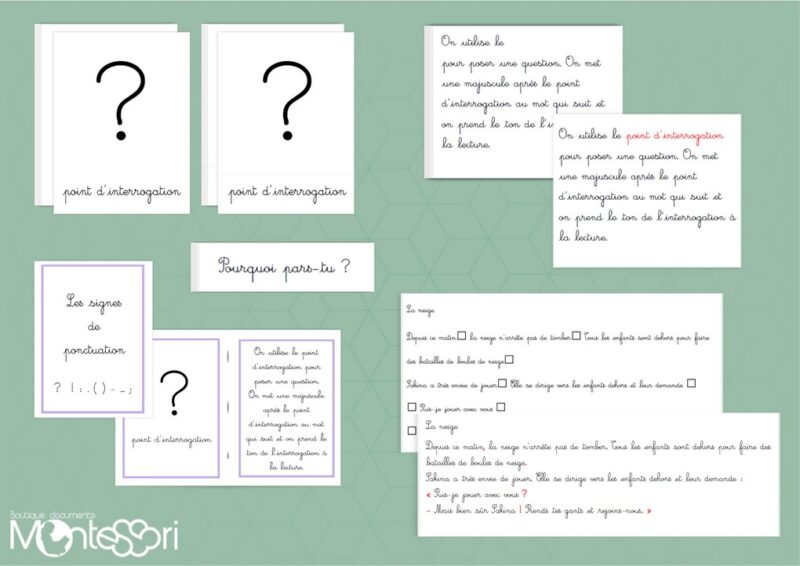 ?
point d'interrogation
?
point d'interrogation
On utilise le
pour poser une question. On met
une majuscule après le point
d'interrogation au mot qui suit et
on prend le ton de l'i
la lecture.
On utilise le point d'interrogation
pour poser une question. On met
une majuscule après le point
d'interrogation au mot qui suit et
on prend le ton de l'interrogation à
la lecture.
Pourquoi pars-tu ?
Les signes
de
ponctuation
? ! : . ( ) - … ;
?
point d'interrogation
On utilise le point
d'interrogation pour
poser une question.
On met une majuscule
après le point
d'interrogation au mot
qui suit et on prend le
ton de l'interrogation à
la lecture.
La neige
Depuis ce matin□ la neige n'arrête pas de tomber□ Tous les enfants sont dehors pour faire
des batailles de boules de neige□
Sakina a très envie de jouer□ Elle se dirige vers les enfants dehors et leur demande □
□ Puis-je jouer avec vous □
□
La neige
Depuis ce matin, la neige n'arrête pas de tomber. Tous les enfants sont dehors pour faire des
batailles de boules de neige.
Sakina a très envie de jouer. Elle se dirige vers les enfants dehors et leur demande :
« Puis-je jouer avec vous ?
- Mais bien sûr Sakina ! Prends tes gants et rejoins-nous. »
Boutique documents
Montessori